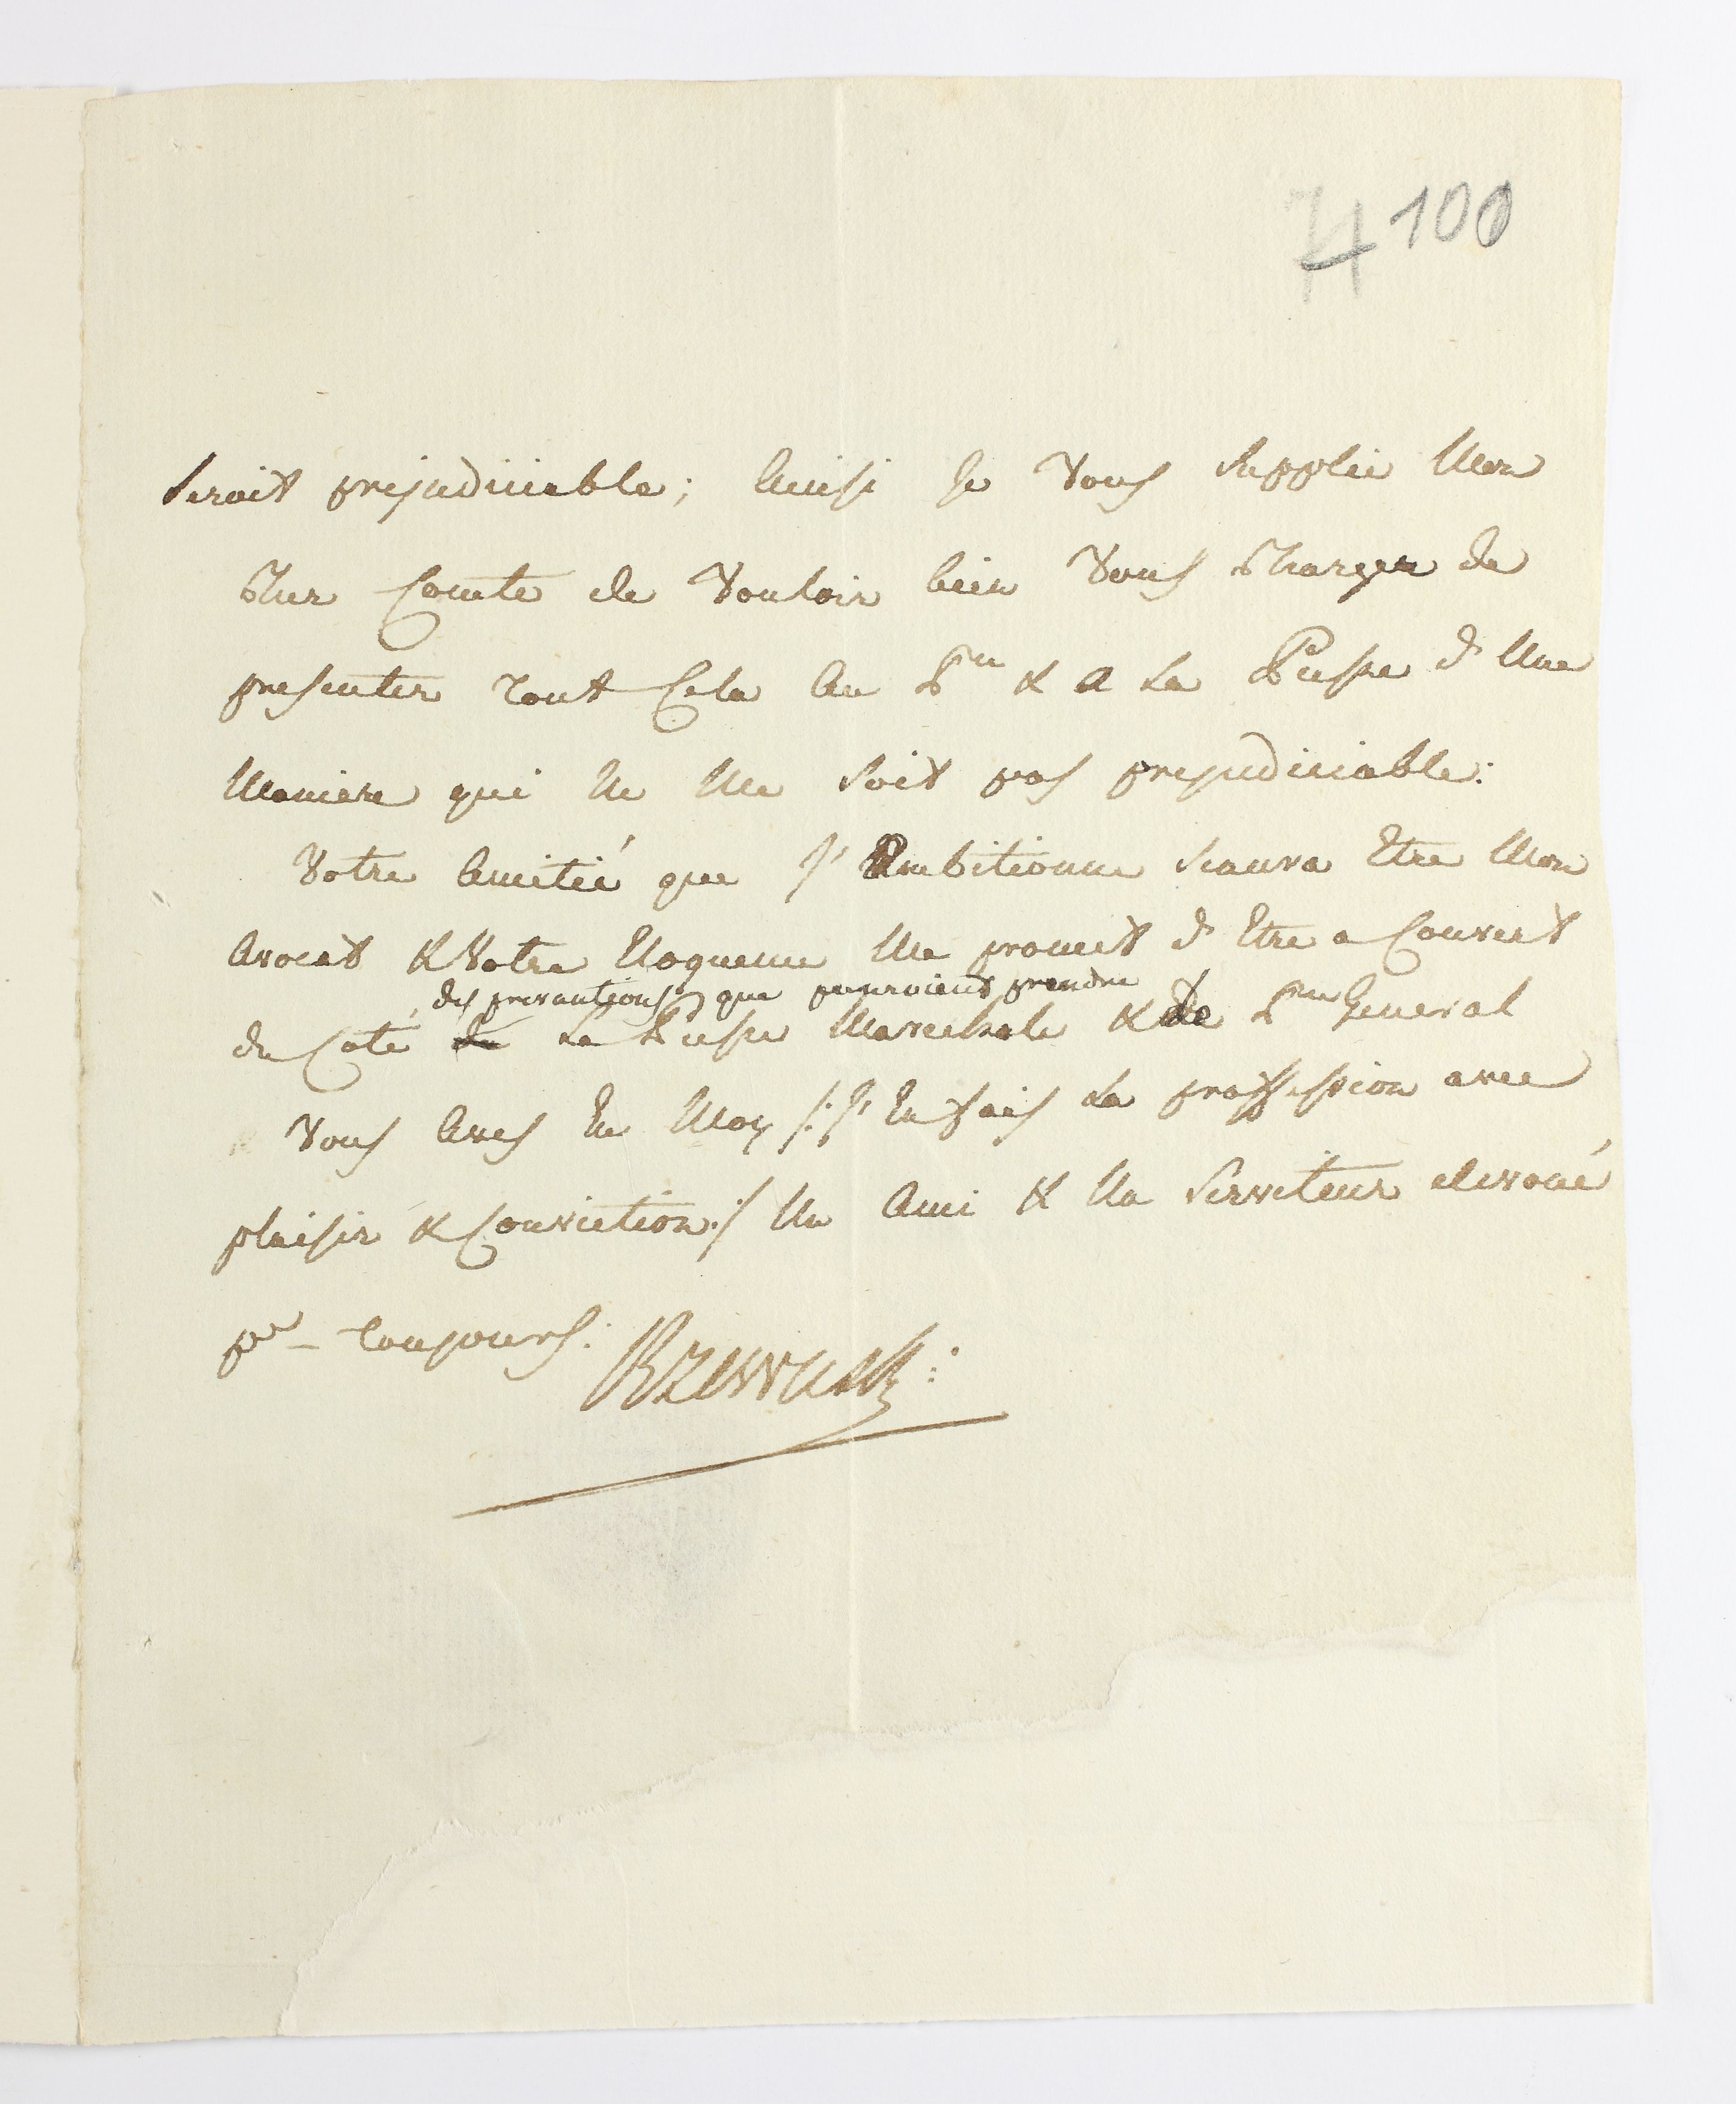 74 100
seroit prejudiciable; Ainsi Je Vous Supplie Mon
Cher Comte de Vouloir bien Vous Charger de
presenter tout Cela Au P<sup>ce</sup> & A La P<sup></sup>cesse d'Une
Maniere qui Ne Me Soit pas prejudiciable:
Votre Amitié que J'Ambitionne Scaura Etre Mon
Avocat & Votre Eloquence Me promet d'Etre a Couvert
des precautions que pouroient prendre
du Coté La Pcesse Marechale & Le P<sup>ce</sup> General
Vous Avez En Moy /: J'En fais La proffession avec
plaisir & Conviction :/ Un Ami & Un Serviteur devoué
pr - toujours: Rzewuski: